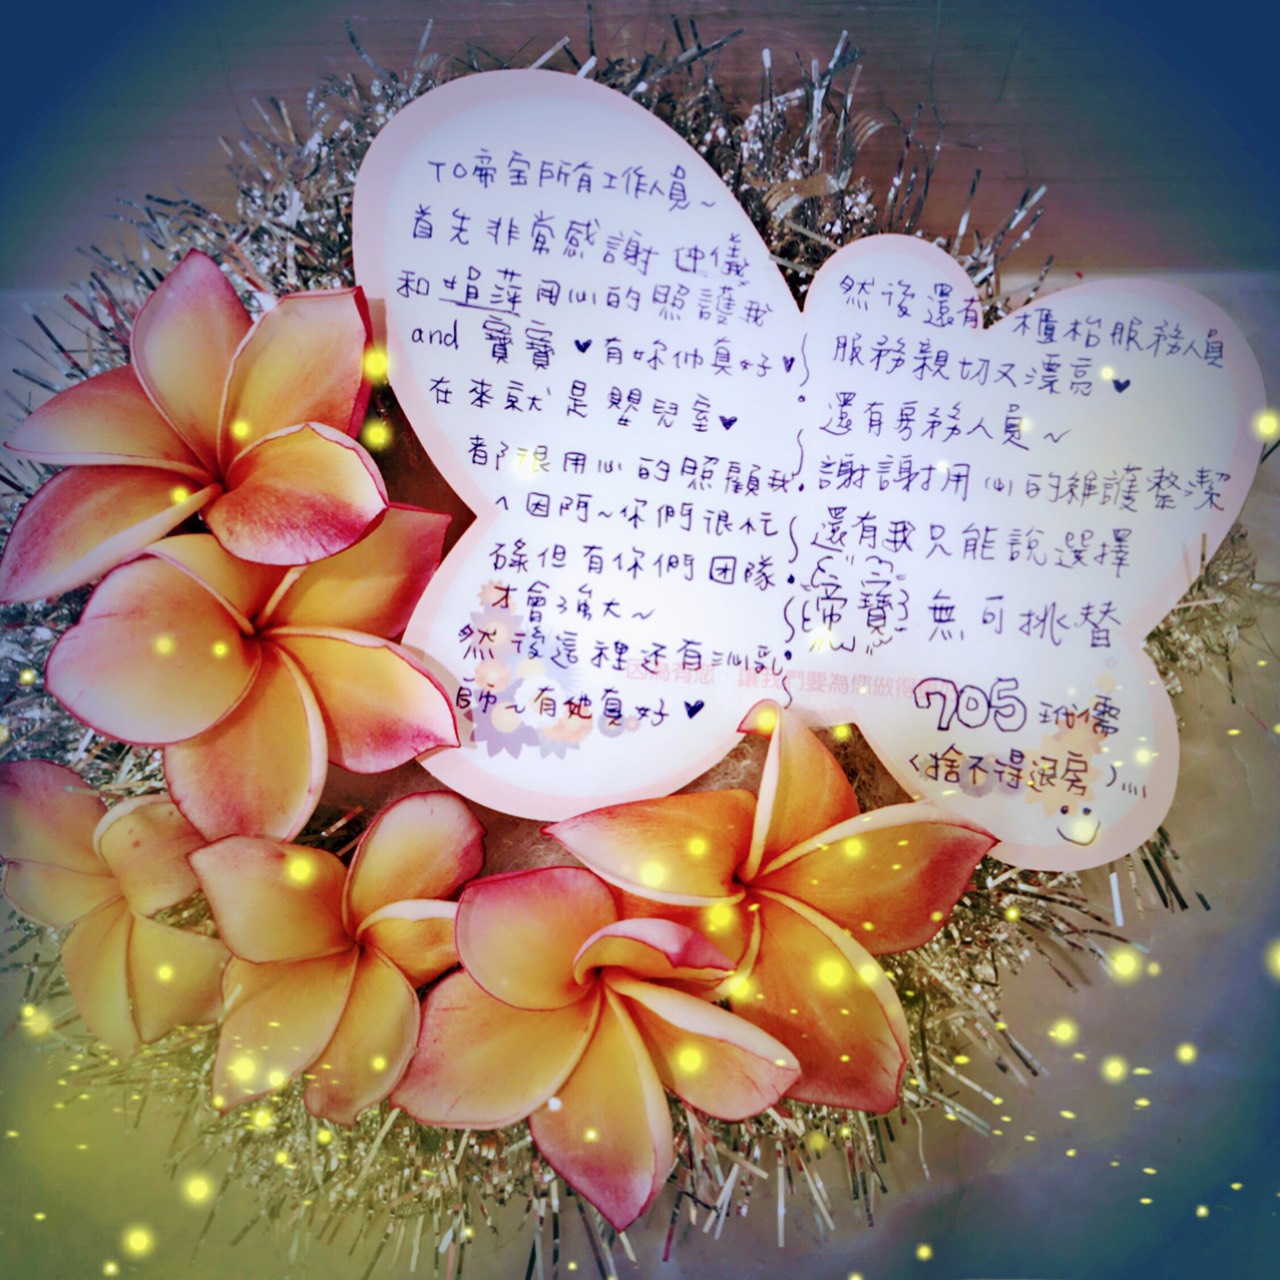 TO帝宝所有工作人員~
首先非常感謝仲儀
和娟萍用心的照護我
and 寶寶♥有妳们真好♥
在來就是嬰兒室♥
都很用心的照顧我
^因阿~你們很忙
碌但有你們团隊
才會強大~
然後這裡还有泌乳
師~有她真好♥
然後還有櫃枱服務人員
服務親切又漂亮♥
還有房務人員~
謝謝用心的維護整潔
還有我只能說選擇
帝寶無可挑替
因為有您,讓我們要為您做得
705 玳儒
(捨不得退房)